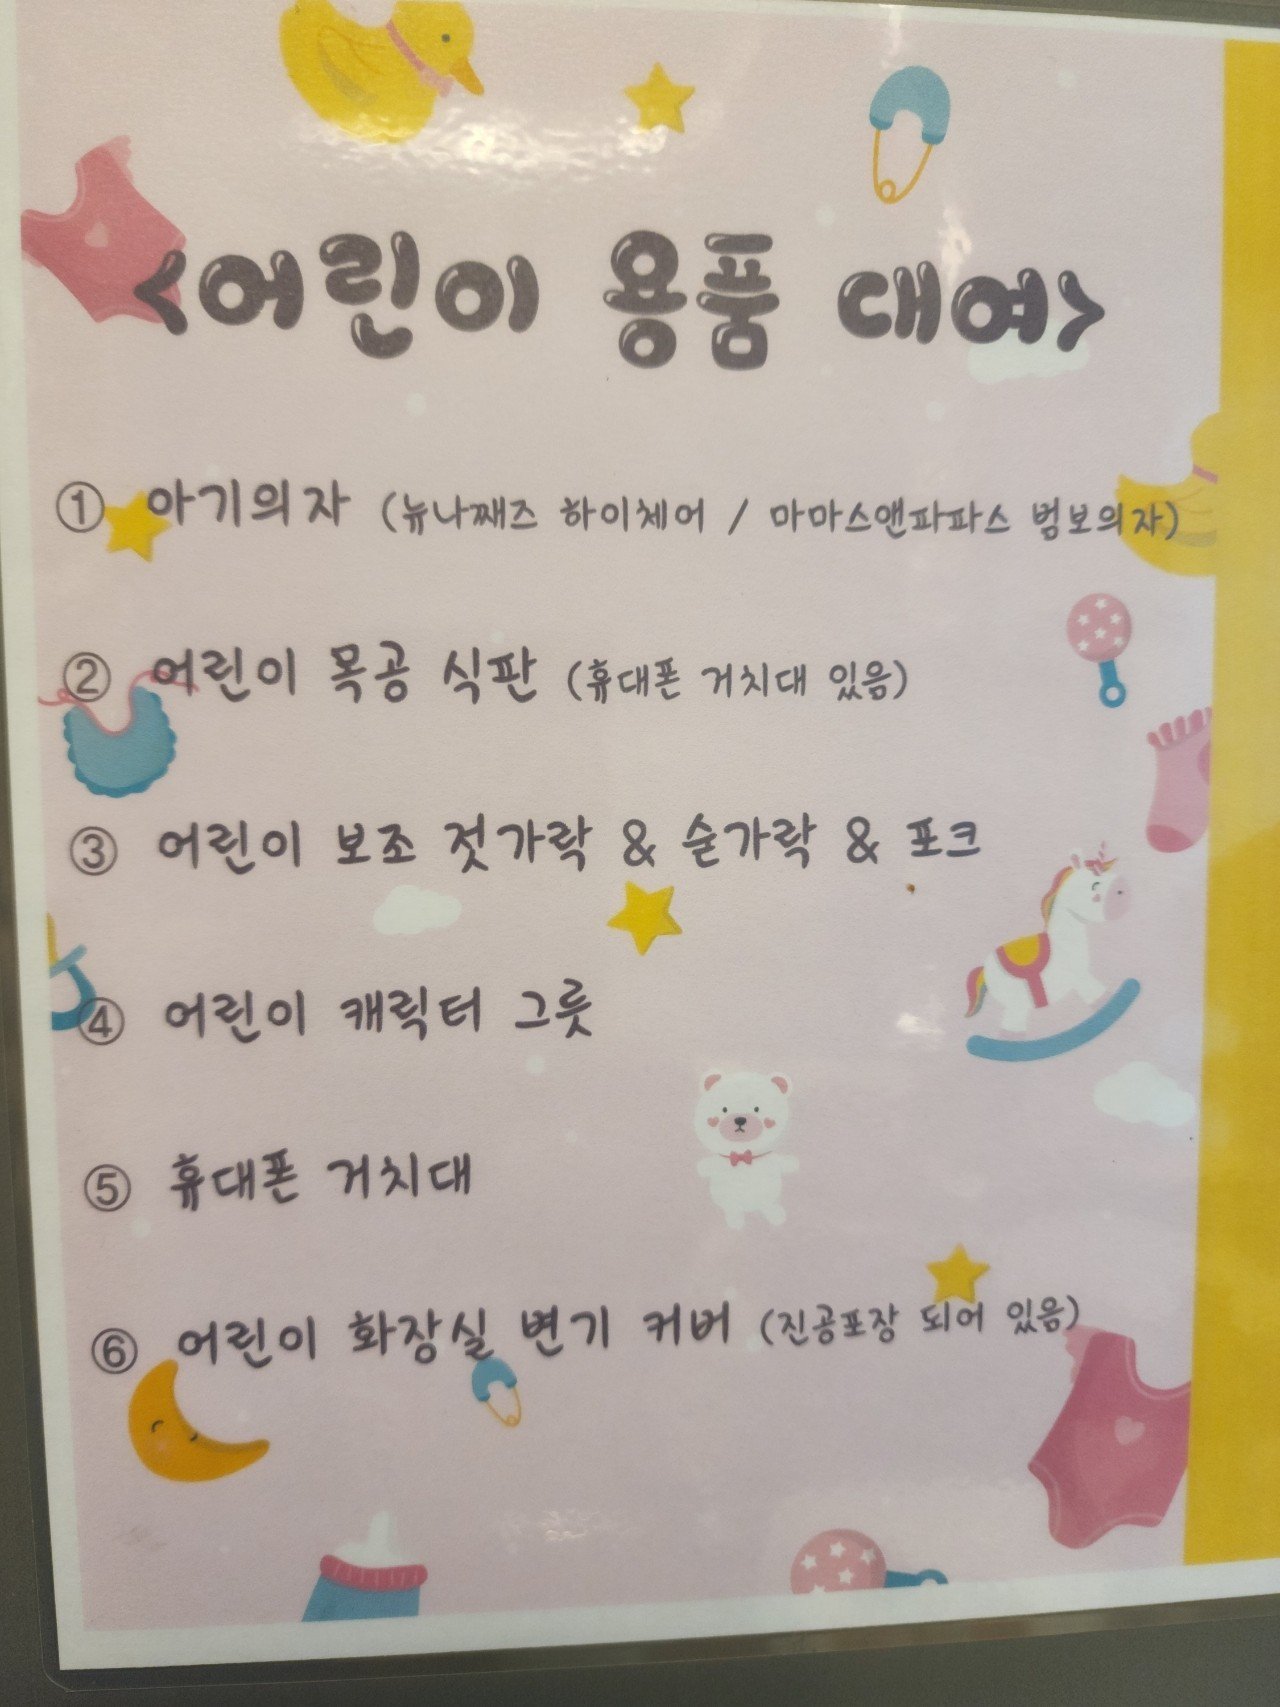 <어린이 용품 대여>
① 아기의자 (뉴나째즈 하이체어 / 마마스앤파파스 범보의자)
② 어린이 목공 식판 (휴대폰 거치대 있음)
③ 어린이 보조 젓가락 & 숟가락 & 포크
④ 어린이 캐릭터 그릇
⑤ 휴대폰 거치대
⑥ 어린이 화장실 변기 커버 (진공포장 되어 있음)